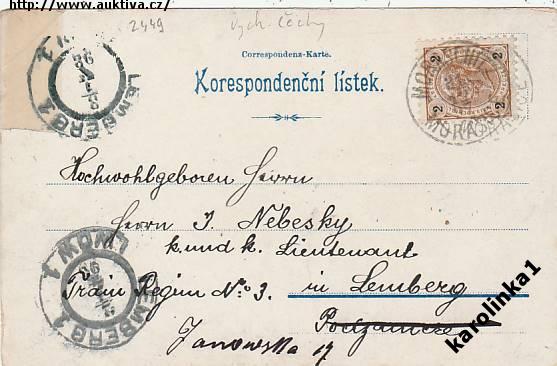 http://www.auktiva.cz/
2449
Vých. Čechy
Correspondenz-Karte.
Korespondenční lístek.
2 2
2 2
LEMBERG 1
Hochwohlgeboren Herrn
Herrn J. Nebesky
k. und k. Lieutenant
Train Regim N:o 3. in Lemberg
Podzamcze
Janowska 17
LEMBERG 1
LWOW 1
karolinka1